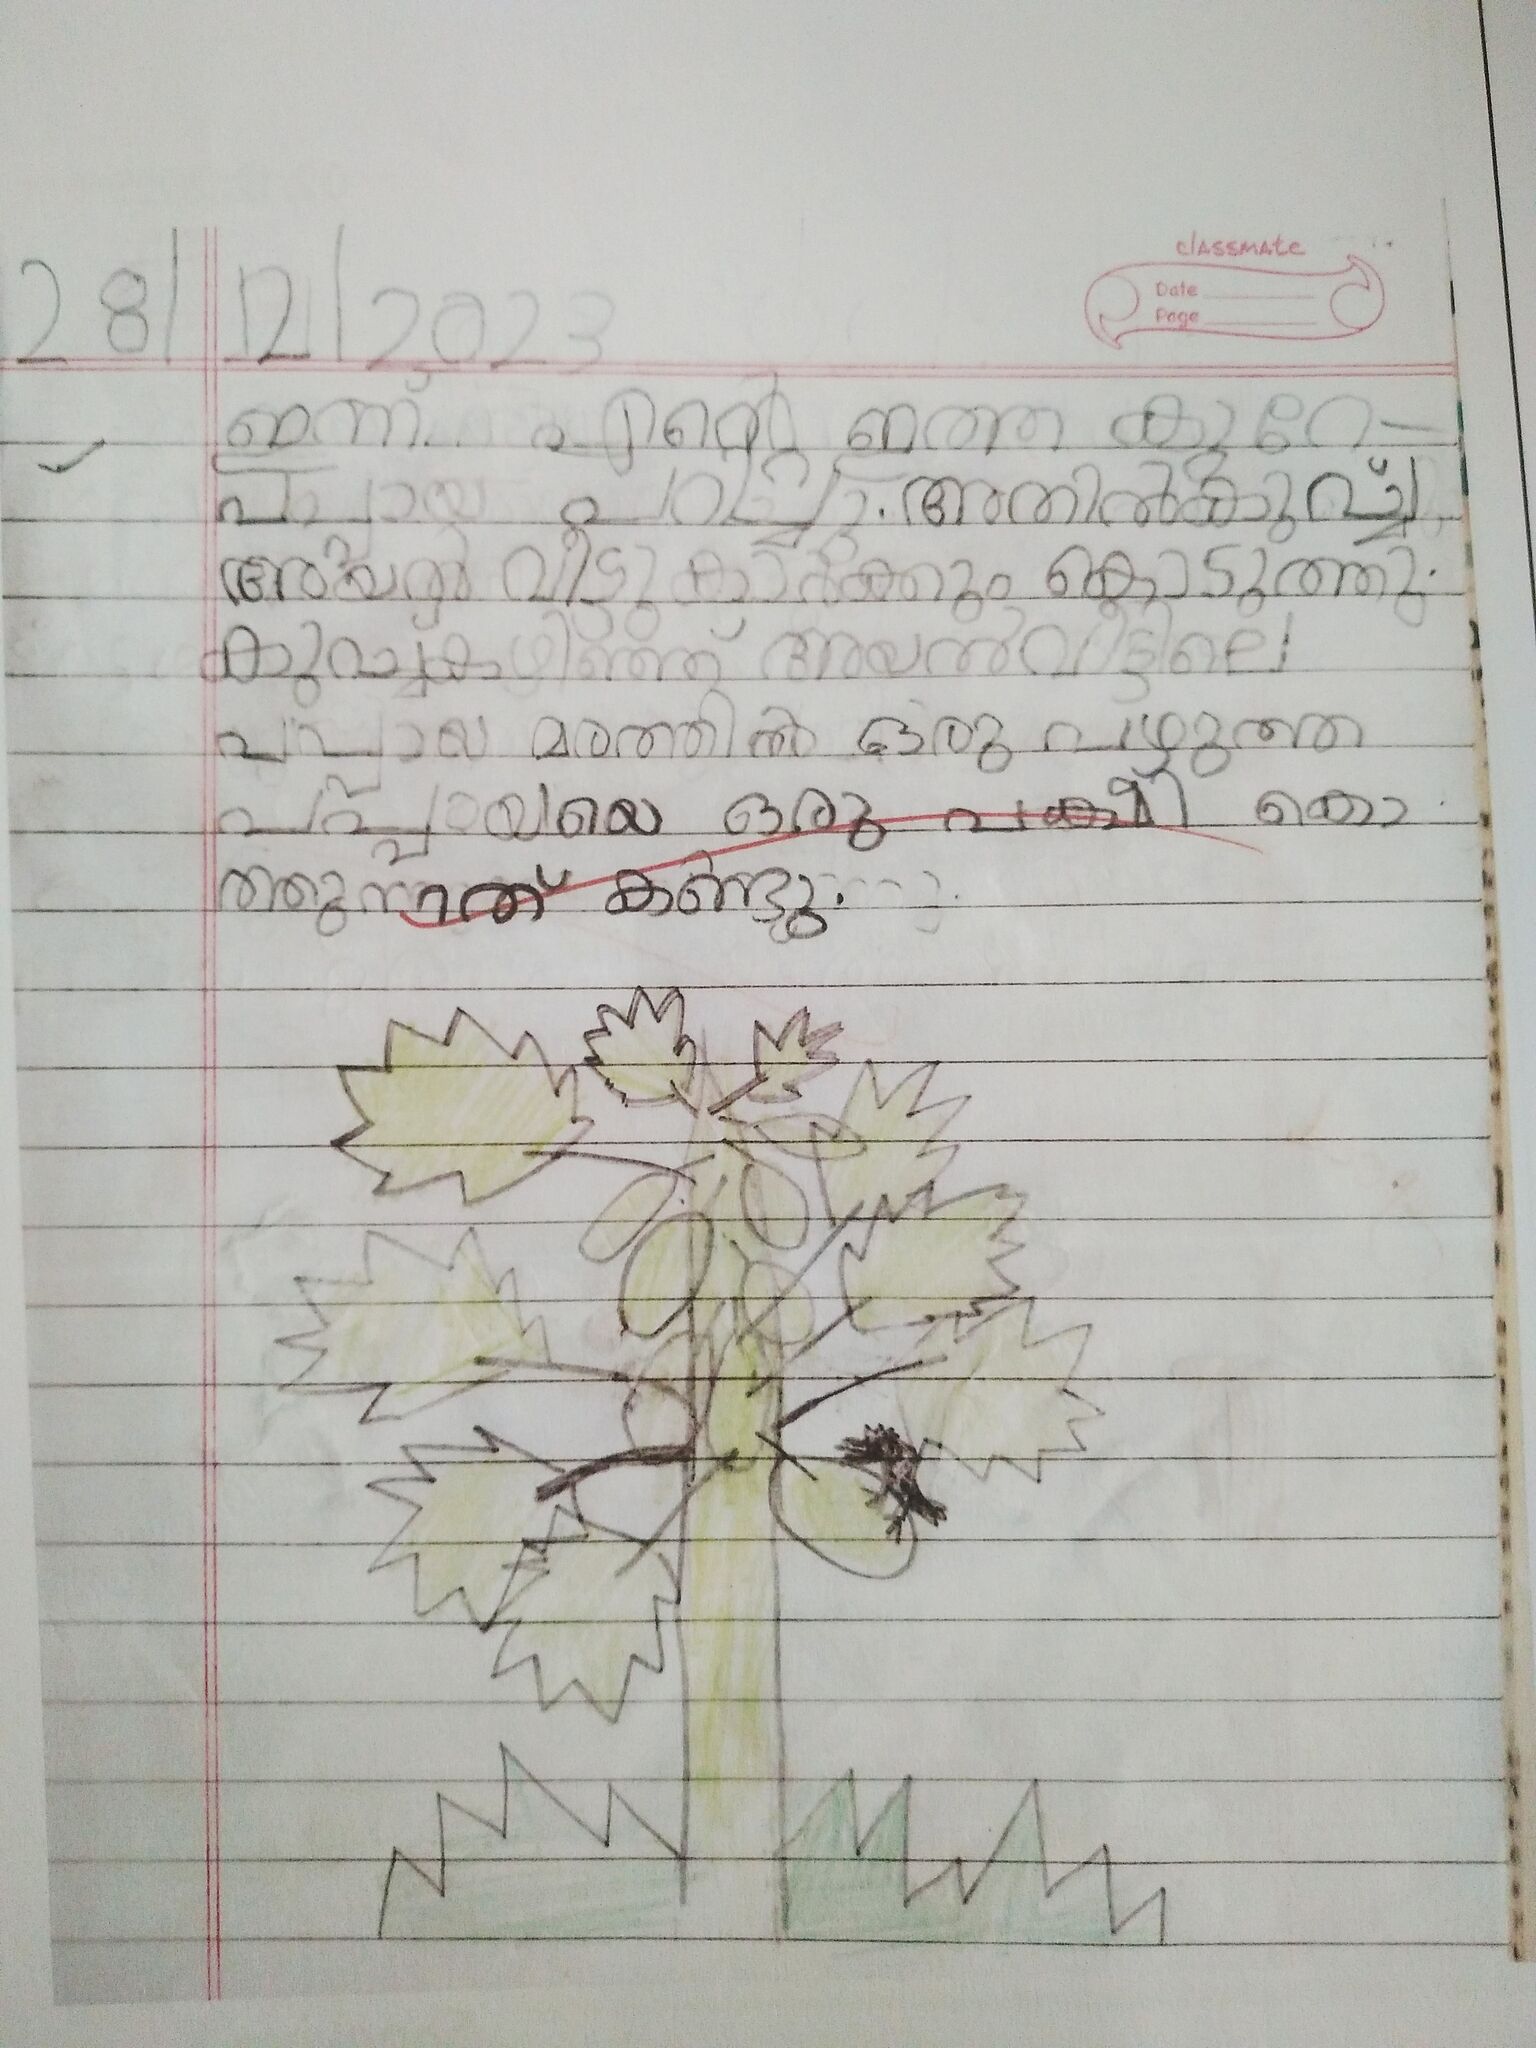 classmate
Date
Page
28/12/2023
ഇന്ന് എന്റെ ഇത്ത കുറേ
പപ്പായ പറിച്ചു. അതിൽകുറച്ച്
അയൽ വീട്ടുകാർക്കും കൊടുത്തു.
കുറച്ചുകഴിഞ്ഞ് അയൽവീട്ടിലെ
പപ്പായ മരത്തിൽ ഒരു പഴുത്ത
പപ്പായയെ ഒരു പക്ഷി കൊ
ത്തുന്നത് കണ്ടു.